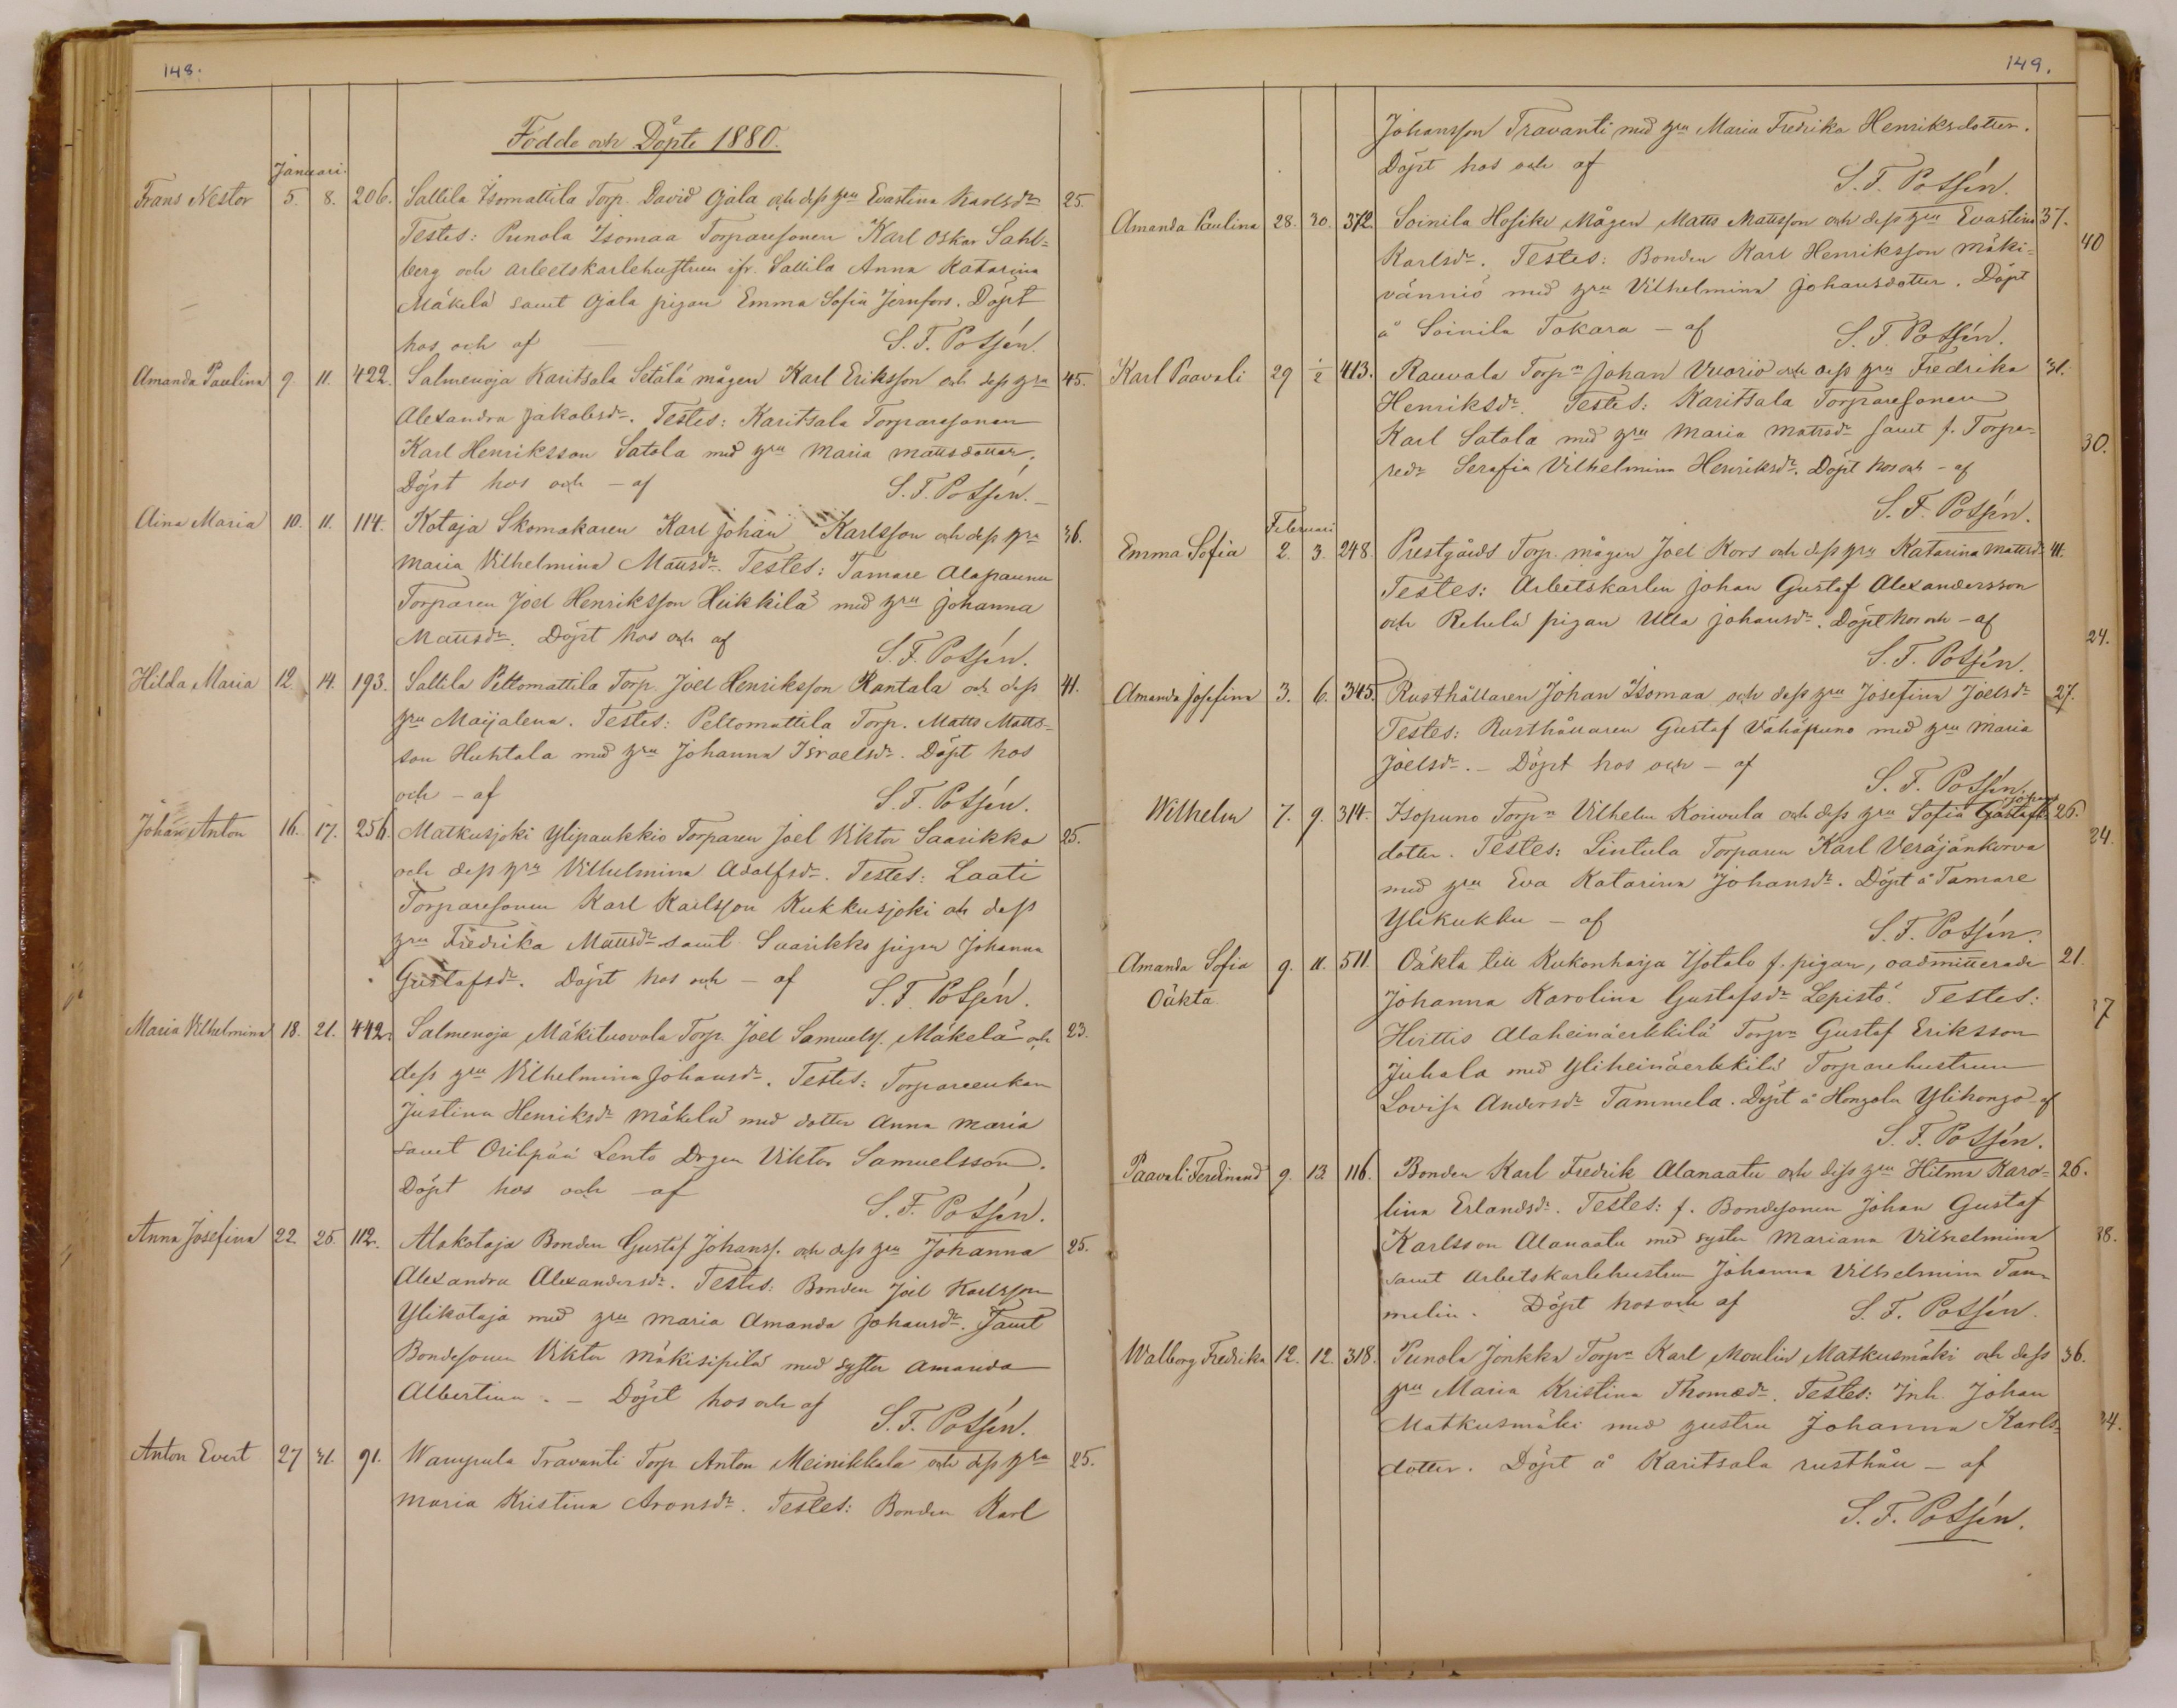 148.
Födde och Döpte 1880.
Januari.
Frans Nestor 5. 8. 206. Sallila Isomattila Torp. David Ojala och dess hru Evastina Karlsdr 25.
Testes: Punola Isomaa Torparesonen Karl Oskar Sahl=
berg och arbetskarlehustrun ifr. Sallila Anna Katarina
Mäkelä samt Ojala pigan Emma Sofia Jernfors. Döpt
hos och af S. F. Potsén.
Amanda Paulina 9. 11. 422. Salmenoja Karitsala Setälä mågen Karl Eriksson och dess hru 45.
Alexandra Jakobsdr. Testes: Karitsala Torparesonen
Karl Henriksson Satola med hru Maria Mattsdotter.
Döpt hos och - af S. F. Potsén.
Aina Maria 10. 11. 114. Kotaja Skomakaren Karl Johan Karlsson och dess hru 36.
Maria Vilhelmina Mattsdr. Testes: Tamare Alapaunu
Torparen Joel Henriksson Heikkilä med hru Johanna
Mattsdr. Döpt hos och af S. F. Potsén.
Hilda Maria 12. 14. 193. Sallila Peltomattila Torp. Joel Henriksson Rantala och dess 41.
hru Maijalena. Testes: Peltomattila Torp. Matts Matts=
son Huhtala med hru Johanna Israelsdr. Döpt hos
och - af S. F. Potsén.
Johan Anton 16. 17. 256. Matkusjoki Ylipaukkio Torparen Joel Viktor Saarikko 25.
och dess hru Vilhelmina Adolfsdr. Testes: Laati
Torparesonen Karl Karlsson Kukkusjoki och dess
hru Fredrika Mattsdr samt Saarikko pigan Johanna
Gustafsdr. Döpt hos och - af S. F. Potsén.
Maria Vilhelmina 18. 21. 442. Salmenoja Mäkituovola Torp. Joel Samuelss. Mäkelä och 23.
dess hru Vilhelmina Johansdr. Testes: Torpareenkan
Justina Henriksdr Mäkelä med dotter Anna Maria
samt Oripää Lento Drgen Viktor Samuelsson.
Döpt hos och af S. F. Potsén.
Anna Josefina 22. 25. 112. Alakotaja Bonden Gustaf Johanss. och dess hru Johanna 25.
Alexandra Alexandersdr. Testes: Bonden Joel Karlsson
Ylikotaja med hru Maria Amanda Johansdr. Samt
Bondesonen Viktor Mäkisipilä med syster Amanda
Albertina. - Döpt hos och af S. F. Potsén.
Anton Evert 27 31. 91. Wampula Travanti Torp. Anton Meinikkala och dess hru 25.
Maria Kristina Aronsdr. Testes: Bonden Karl
149.
Johansson Travanti med hru Maria Fredrika Henriksdotter.
Döpt hos och af S. F. Potsén.
Amanda Paulina 28. 30. 372. Soinila Hosike Mågen Matts Mattsson och dess hru Evastina 37.
Karlsdr. Testes: Bonden Karl Henriksson Mäki=
vänniö med hru Vilhelmina Johansdotter. Döpt
å Soinila Tokara - af S. F. Potsén.
Karl Paavali 29 1/2 413. Rauvola Torpn Johan Vuorio och dess hru Fredrika 31.
Henriksdr. Testes: Karitsala Torparesonen
Karl Satola med hru Maria Mattsdr samt f. Torpa=
redr Serafia Vilhelmina Henriksdr. Döpt hos och - af
S. F. Potsén.
Februari
Emma Sofia 2. 3. 248. Prestgårds Torp. mågen Joel Kors och dess hru Katarina Mattsdr 41.
Testes: Arbetskarlen Johan Gustaf Alexandersson
och Rehelä pigan Ulla Johansdr. Döpt hos och - af
S. F. Potsén.
Amanda Josefina 3. 6. 345. Rusthållaren Johan Isomaa och dess hru Josefina Joelsdr 27.
Testes: Rusthållaren Gustaf Vähäpuno med hru Maria
Joelsdr. - Döpt hos och - af S. F. Potsén.
Wilhelm 7. 9. 314. Isopuno Torpn Vilhelm Koivula och dess hru Sofia Gustafs 26.
dotter. Testes: Lintula Torparen Karl Veräjänkorva
med hru Eva Katarina Johansdr. Döpt å Tamare
Ylikukku - af S. F. Potsén.
Amanda Sofia 9. 11. 511. Oäkta till Kukonharja Isotalo f. pigan, oadmitterade 21.
Oäkta Johanna Karolina Gustafsdr Lepistö. Testes:
Hirttis Alaheinäerkkilä Torpn Gustaf Eriksson
Juhala med Yliheinäerkkilä Torparehustrun
Lovisa Andersdr Tammela. Döpt å Hongola Ylihongo - af
S. F. Potsén.
Paavali Ferdinand 9. 13 116. Bonden Karl Fredrik Alanaatu och dess hru Hilma Karo= 26.
lina Erlandsdr. Testes: f. Bondesonen Johan Gustaf
Karlsson Alanaatu med syster Mariana Vilhelmina
samt Arbetskarlehustrun Johanna Vilhelmina Tam=
melin. Döpt hos och af S. F. Potsén.
Walborg Fredrika 12. 12. 318. Punola Jonkka Torpn Karl Moulin Matkusmäki och dess 36.
hru Maria Kristina Thomædr. Testes: Inh. Johan
Matkusmäki med hustru Johanna Karls=
dotter. Döpt å Karitsala rusthåll - af
S. F. Potsén.
40
30.
24.
24.
37
38.
34.